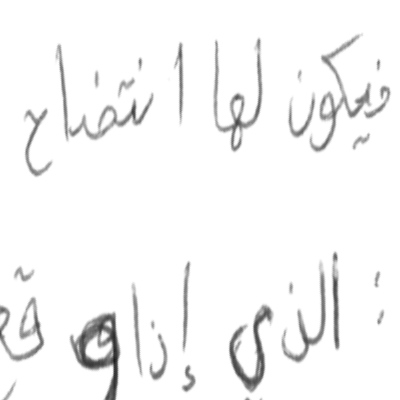 فيكون لها انتضاح
: الذي إذا و